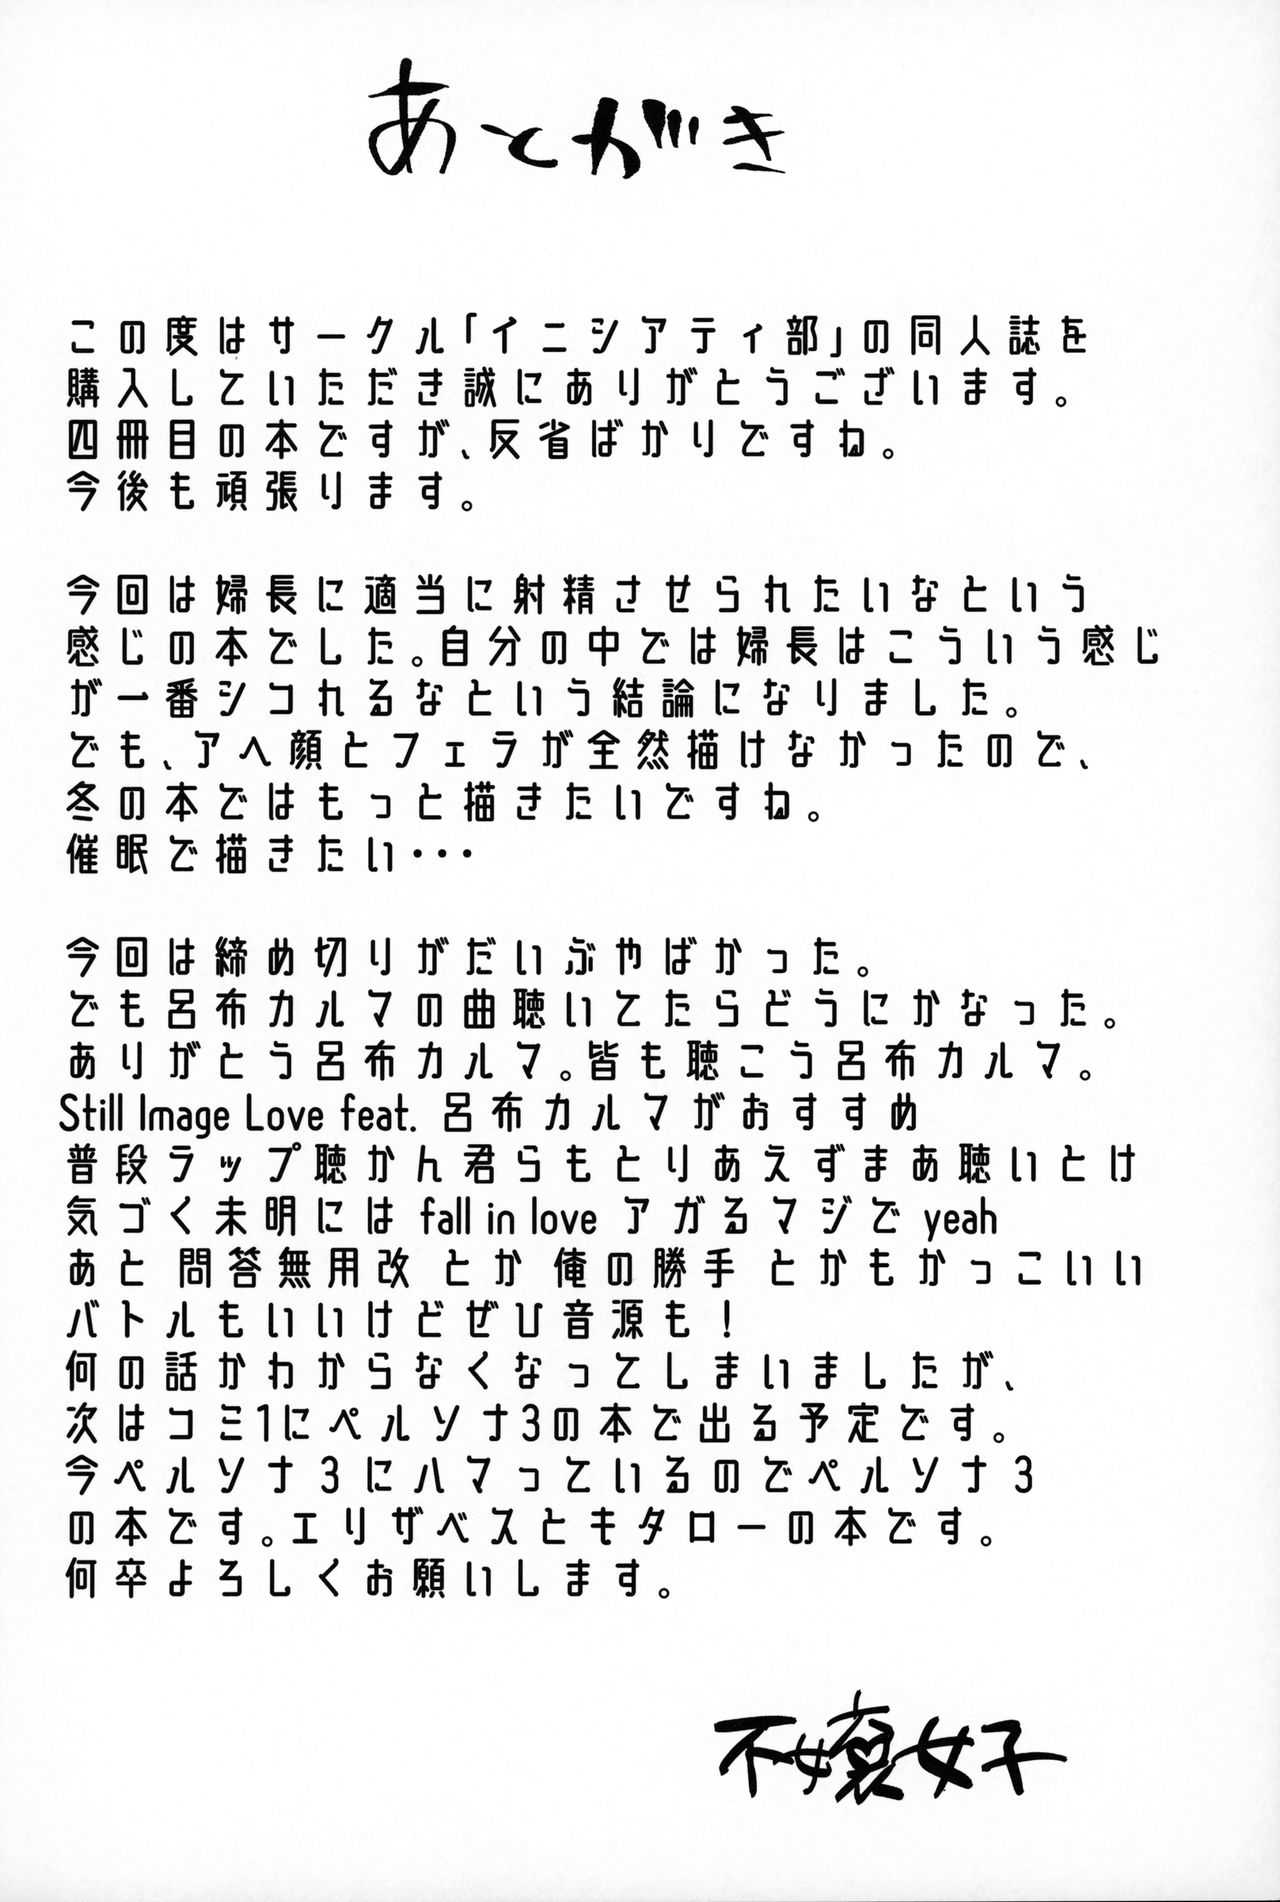 あとがき
この度はサークル「イニシアティ部」の同人誌を
購入していただき誠にありがとうございます。
四冊目の本ですが、反省ばかりですね。
今後も頑張ります。
今回は婦長に適当に射精させられたいなという
感じの本でした。自分の中では婦長はこういう感じ
が一番シコれるなという結論になりました。
でも、アヘ顔とフェラが全然描けなかったので、
冬の本ではもっと描きたいですね。
催眠で描きたい・・・
今回は締め切りがだいぶやばかった。
でも呂布カルマの曲聴いてたらどうにかなった。
ありがとう呂布カルマ。皆も聴こう呂布カルマ。
Still Image Love feat. 呂布カルマがおすすめ
普段ラップ聴かん君らもとりあえずまあ聴いとけ
気づく未明には fall in love アガるマジで yeah
あと 問答無用改 とか 俺の勝手 とかもかっこいい
バトルもいいけどぜひ音源も！
何の話かわからなくなってしまいましたが、
次はコミ1にペルソナ3の本で出る予定です。
今ペルソナ3にハマっているのでペルソナ3
の本です。エリザベスともタローの本です。
何卒よろしくお願いします。
不嬢女子